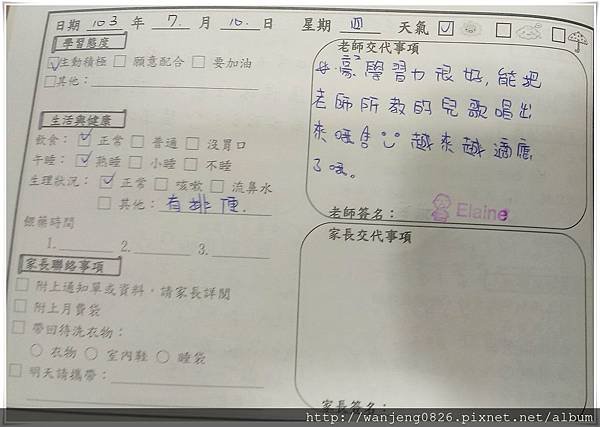 日期 103 年 7. 月 10. 日 星期 四 天氣 ☑ □ □
學習態度
☑生動積極 □ 願意配合 □ 要加油
□其他：
生活與健康
飲食：☑ 正常 □ 普通 □ 沒胃口
午睡：☑ 熟睡 □ 小睡 □ 不睡
生理狀況：☑ 正常 □ 咳嗽 □ 流鼻水
□ 其他：有排便.
餵藥時間
1. 2. 3.
家長聯絡事項
□ 附上通知單或資料，請家長詳閱
□ 附上月費袋
□ 帶回待洗衣物：
○ 衣物 ○ 室內鞋 ○ 睡袋
□ 明天請攜帶：
老師交代事項
豪學習力很好, 能把
老師所教的兒歌唱出
來唷 越來越適應
了唷。
老師簽名： Elaine
家長交代事項
家長簽名：
http://wanjeng0826.pixnet.net/album